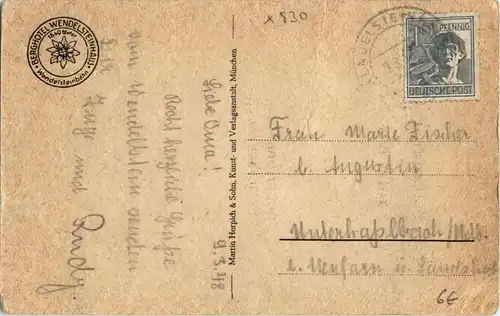 x 830
BERGHOTEL WENDELSTEINHAUS
1840 Meter
Wendelsteinbahn
WENDELSTEIN
PFENNIG
DEUTSCHE POST
9.3.48
Liebe Oma!
Recht herzliche Grüße
vom Wendelstein senden
Dir Inge und
Rudy.
Martin Herpich & Sohn, Kunst- und Verlagsanstalt, München
Frau Marie Fischer
b. Augustin
Unterhaßlbach
b.
6€